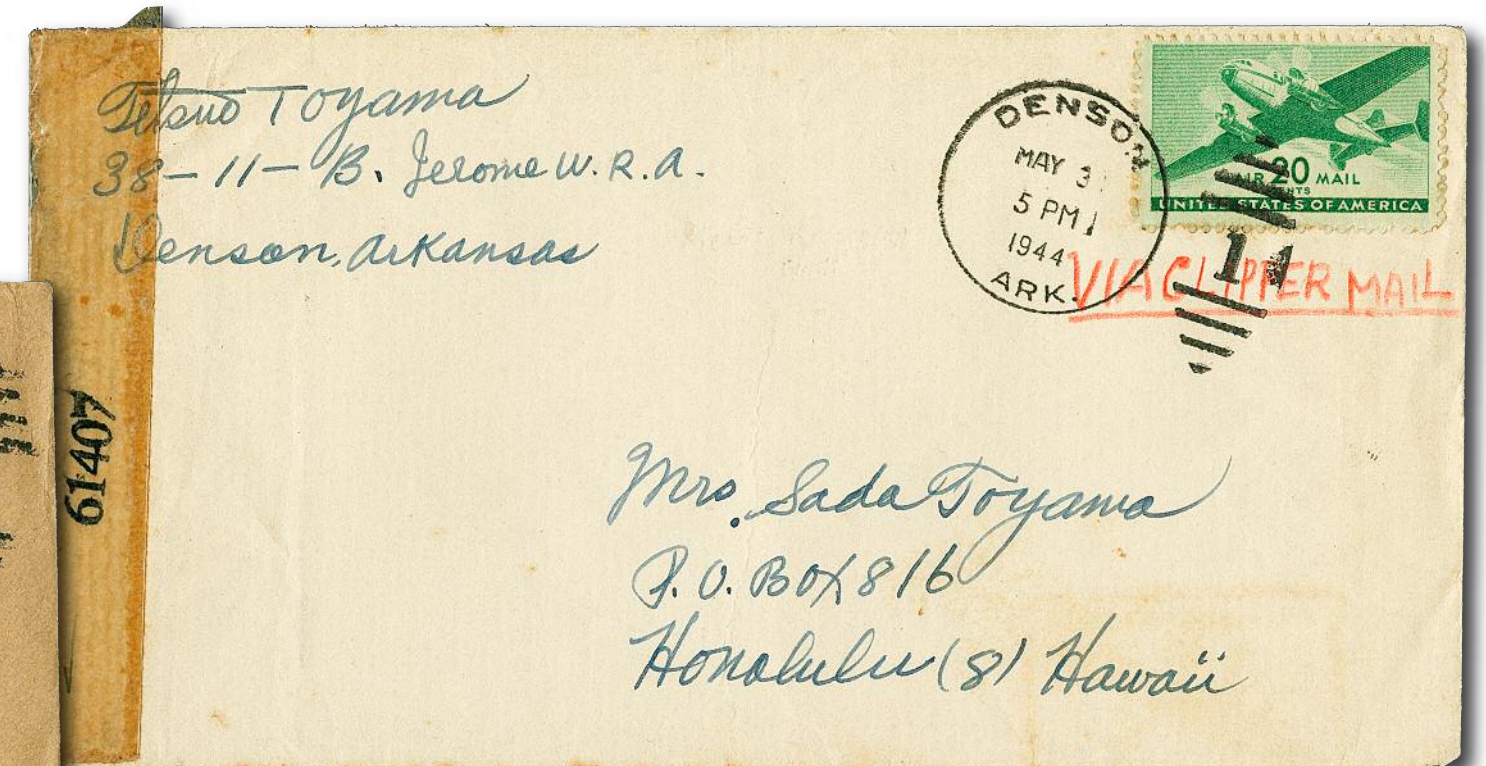 Tetsuo Toyama
38-11-B. Jerome W. R. A.
Denson, Arkansas
DENSON
MAY 3
5 PM
1944
ARK.
AIR 20 MAIL
CENTS
UNITED STATES OF AMERICA
11
VIA CLIPPER MAIL
61407
Mrs. Sada Toyama
P. O. BOX 816
Honolulu (8) Hawaii